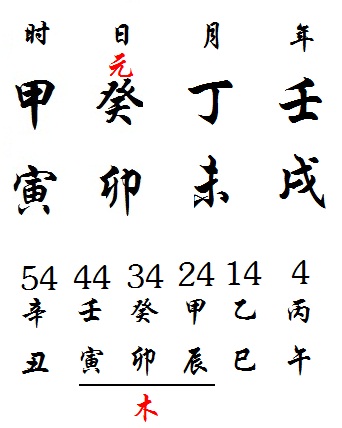 时 日 月 年
元
甲 癸 丁 壬
寅 卯 未 戌
54 44 34 24 14 4
辛 壬 癸 甲 乙 丙
丑 寅 卯 辰 巳 午
木